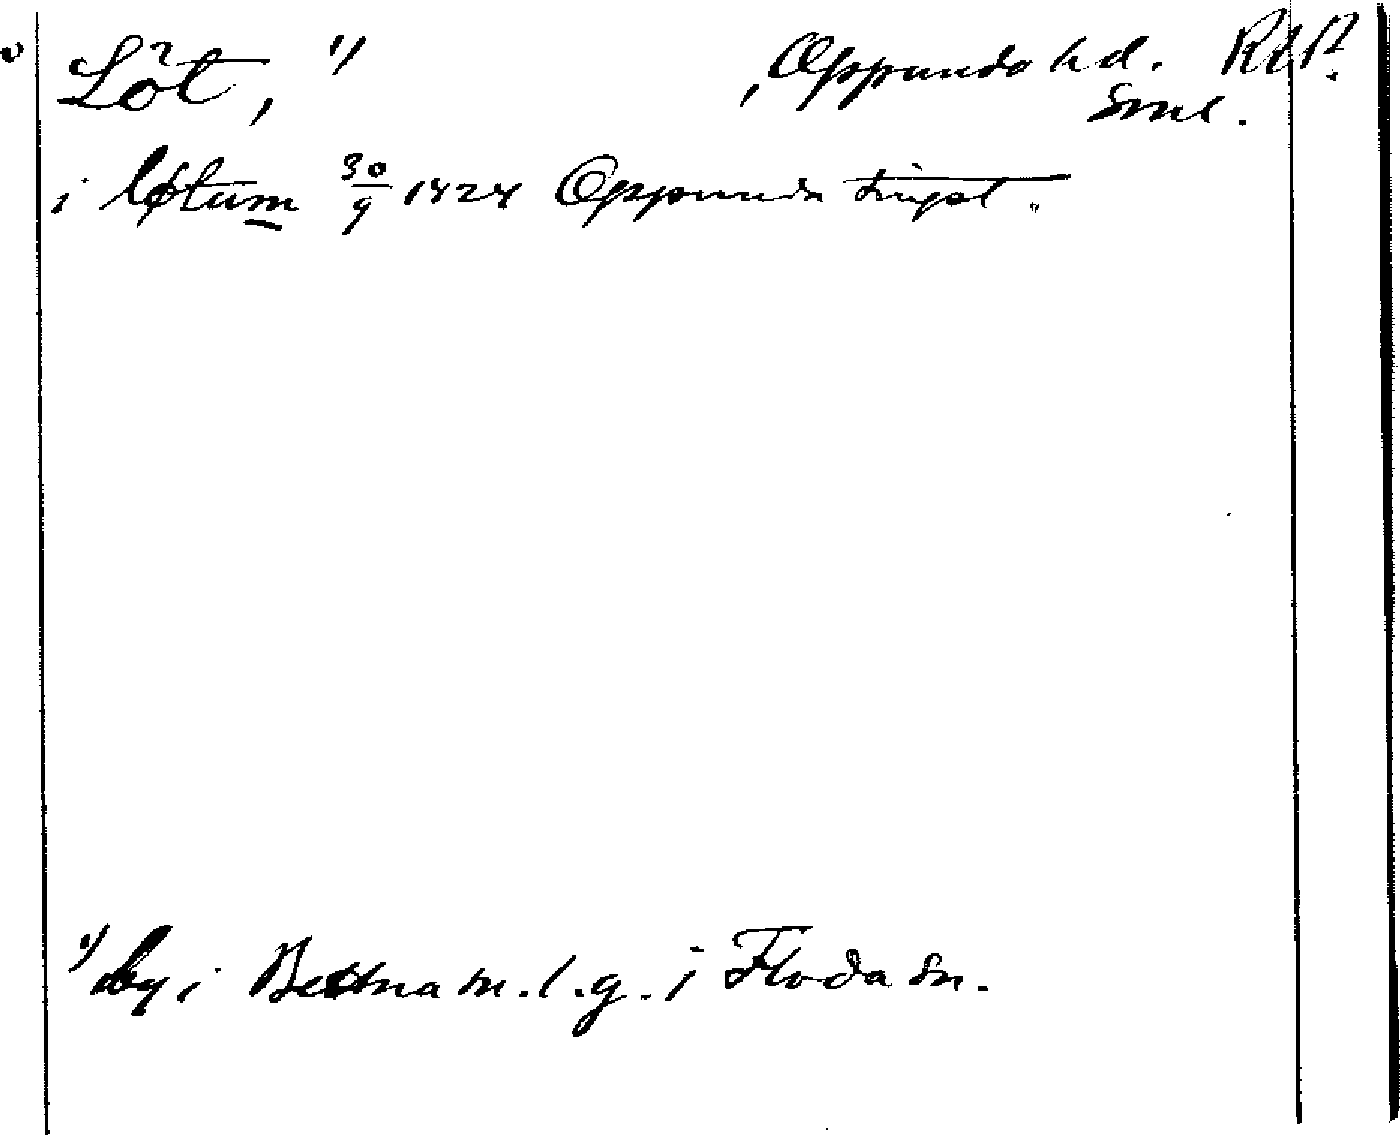 Löt, ¹⁾ , Oppunda hd. RAP.
Sml.
i løtum 30/9 1424 Oppunda tingst.
¹⁾ by i Bettna sn. l. g. i Floda sn.